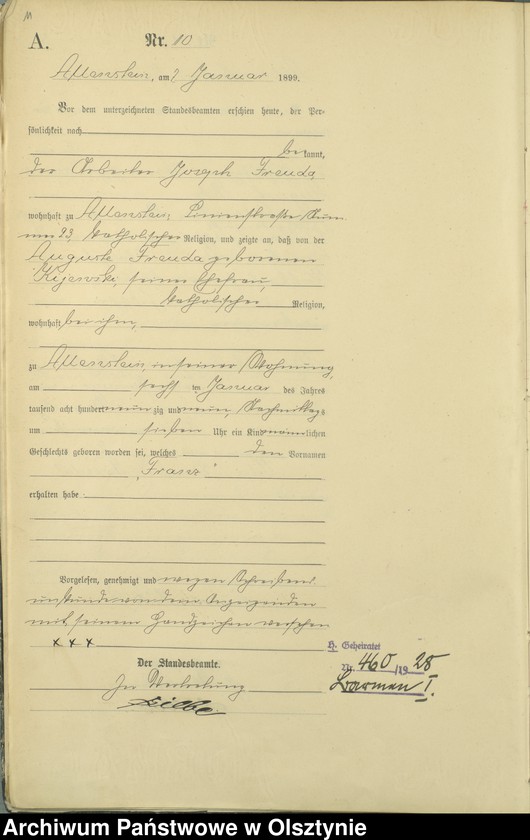 11
A.
Nr. 10
Allenstein, am 7 Januar 1899.
Vor dem unterzeichneten Standesbeamten erschien heute, der Per-
sönlichkeit nach
be kannt,
der Arbeiter Joseph Freuda,
wohnhaft zu Allenstein, Linienstraße Num
mer 93, katholischer Religion, und zeigte an, daß von der
Auguste Freuda geborenen
Kijewski, seiner Ehefrau,
katholischer Religion,
wohnhaft bei ihm,
zu Allenstein, in seiner Wohnung,
am sechs ten Januar des Jahres
tausend acht hundert neun zig und neun, Nachmittags
um sieben Uhr ein Kind männlichen
Geschlechts geboren worden sei, welches den Vornamen
"Franz"
erhalten habe
Vorgelesen, genehmigt und wegen Schreibens
unkunde von dem Anzeigenden
mit seinem Handzeichen versehen
x x x
Der Standesbeamte.
In Vertretung
H. Geheiratet
Nr. 460/1928
Barmen I.
Archiwum Państwowe w Olsztynie